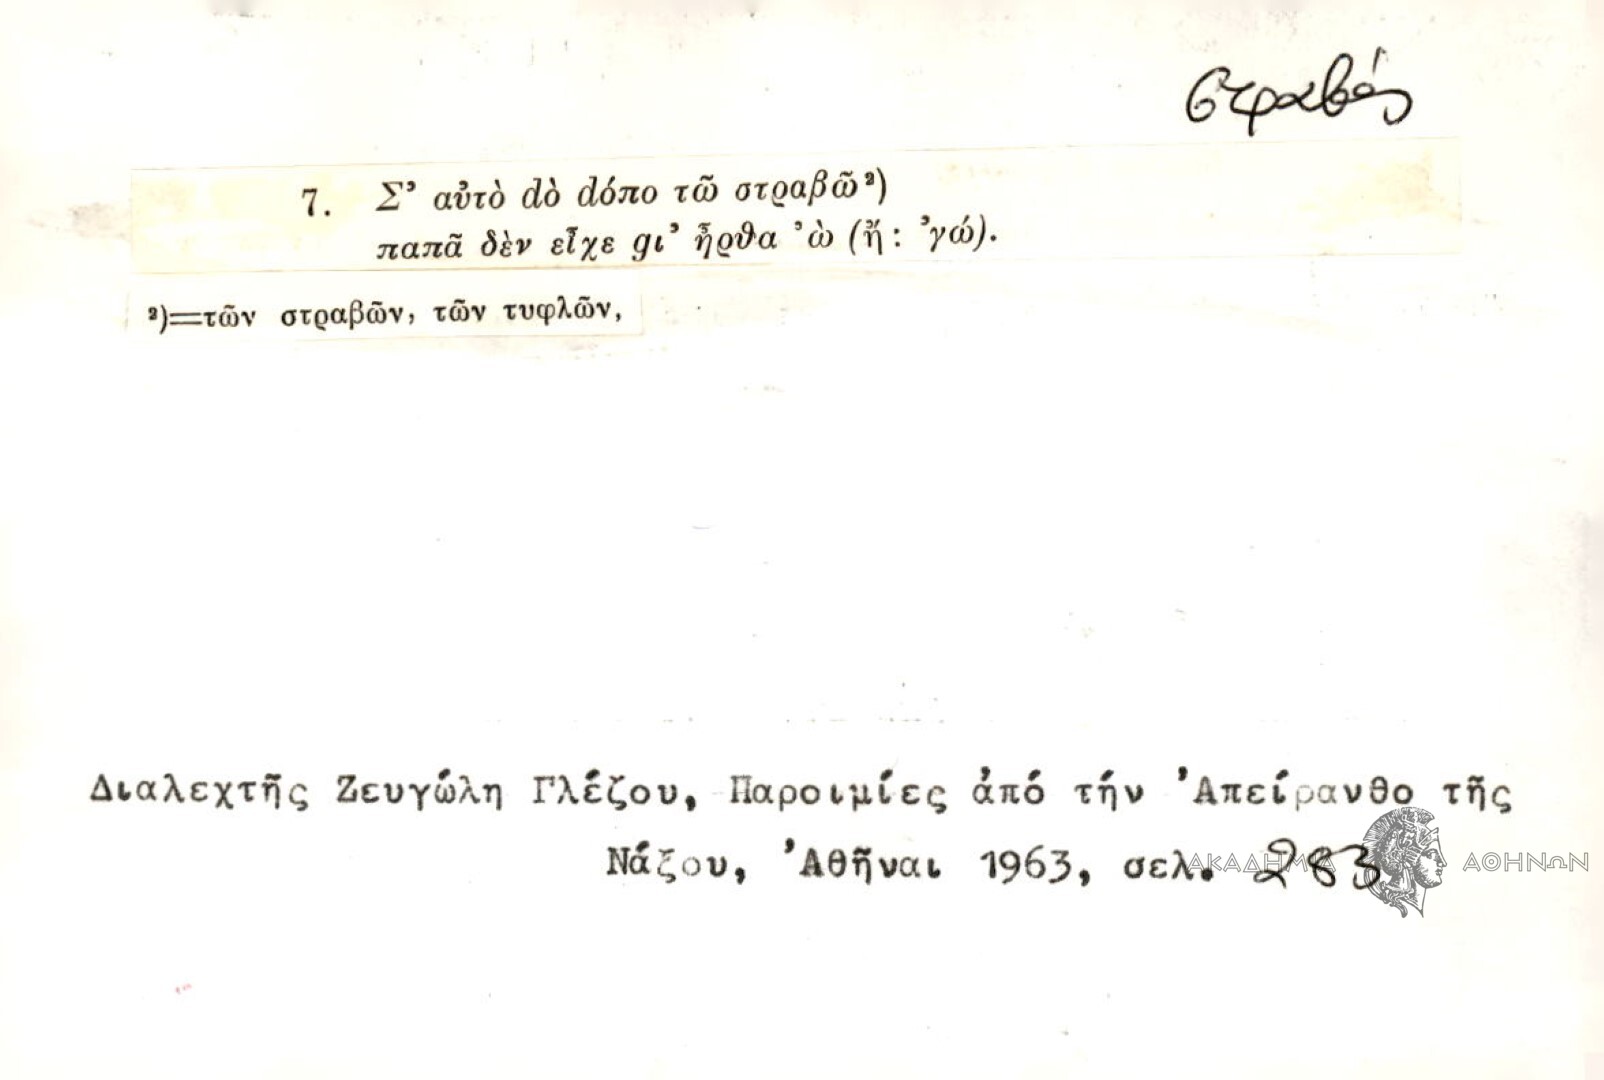 στραβός
7. Σ' αὐτὸ dὸ dόπο τῶ στραβῶ²)
παπᾶ δὲν εἶχε gι' ἦρθα 'ὼ (ἤ: 'γώ).
²)=τῶν στραβῶν, τῶν τυφλῶν,
Διαλεχτῆς Ζευγώλη Γλέζου, Παροιμίες ἀπό τήν 'Απείρανθο τῆς
Νάξου, 'Αθῆναι 1963, σελ. 283
ΑΚΑΔΗΜΙΑ ΑΘΗΝΩΝ